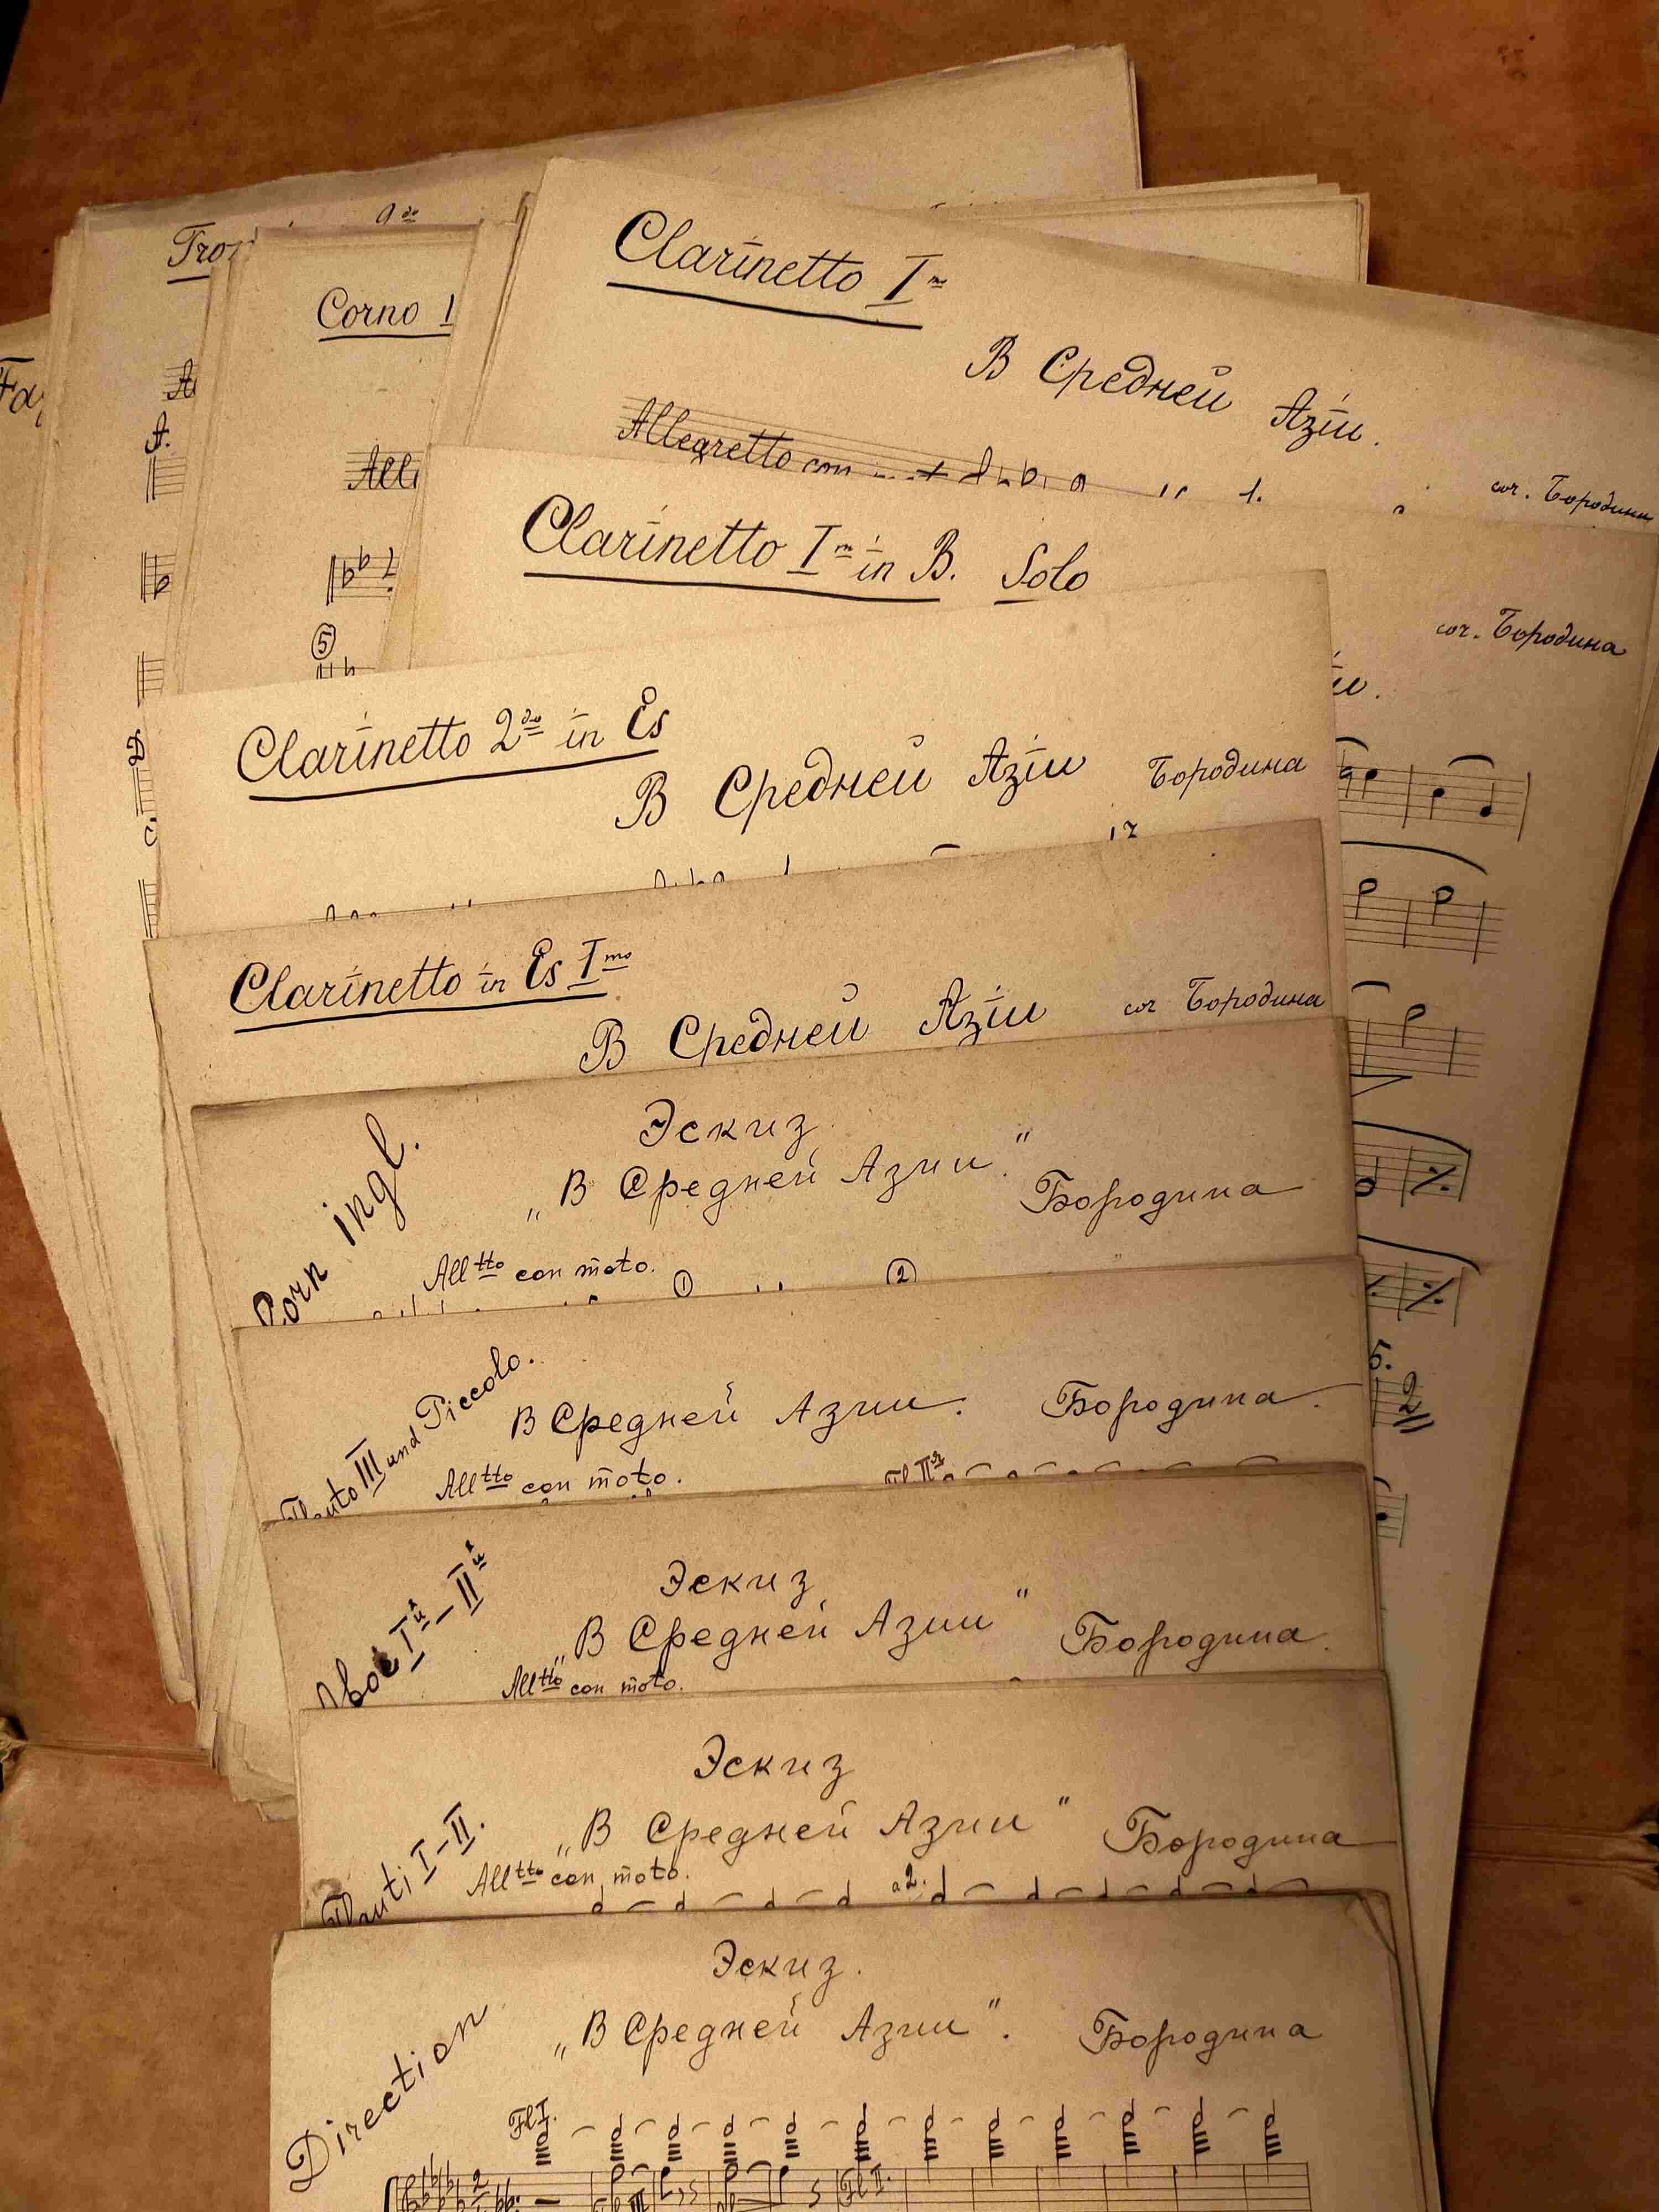 Clarinetto I m
В Средней Азіи.
Allegretto con
соч. Бородина
Corno 1
A.
5
D
C.
Clarinetto I m in B. Solo
соч. Бородина
Clarinetto 2 do in Es
В Средней Азіи Бородина
Clarinetto in Es I mo
В Средней Азіи соч Бородина
Corn ingl.
Эскиз
„В Средней Азии."
Бородина
All tto con moto.
1 2
Flauto III und Piccolo.
В Средней Азии. Бородина.
All tto con moto.
Fl II
Oboe I й – II й
Эскиз
„В Средней Азии"
Бородина.
All tto con moto.
Flauti I–II.
Эскиз
„В Средней Азии"
Бородина
All tto con moto.
a 2.
Direction
Эскиз.
„В Средней Азии".
Бородина
Fl I.
Fl II.